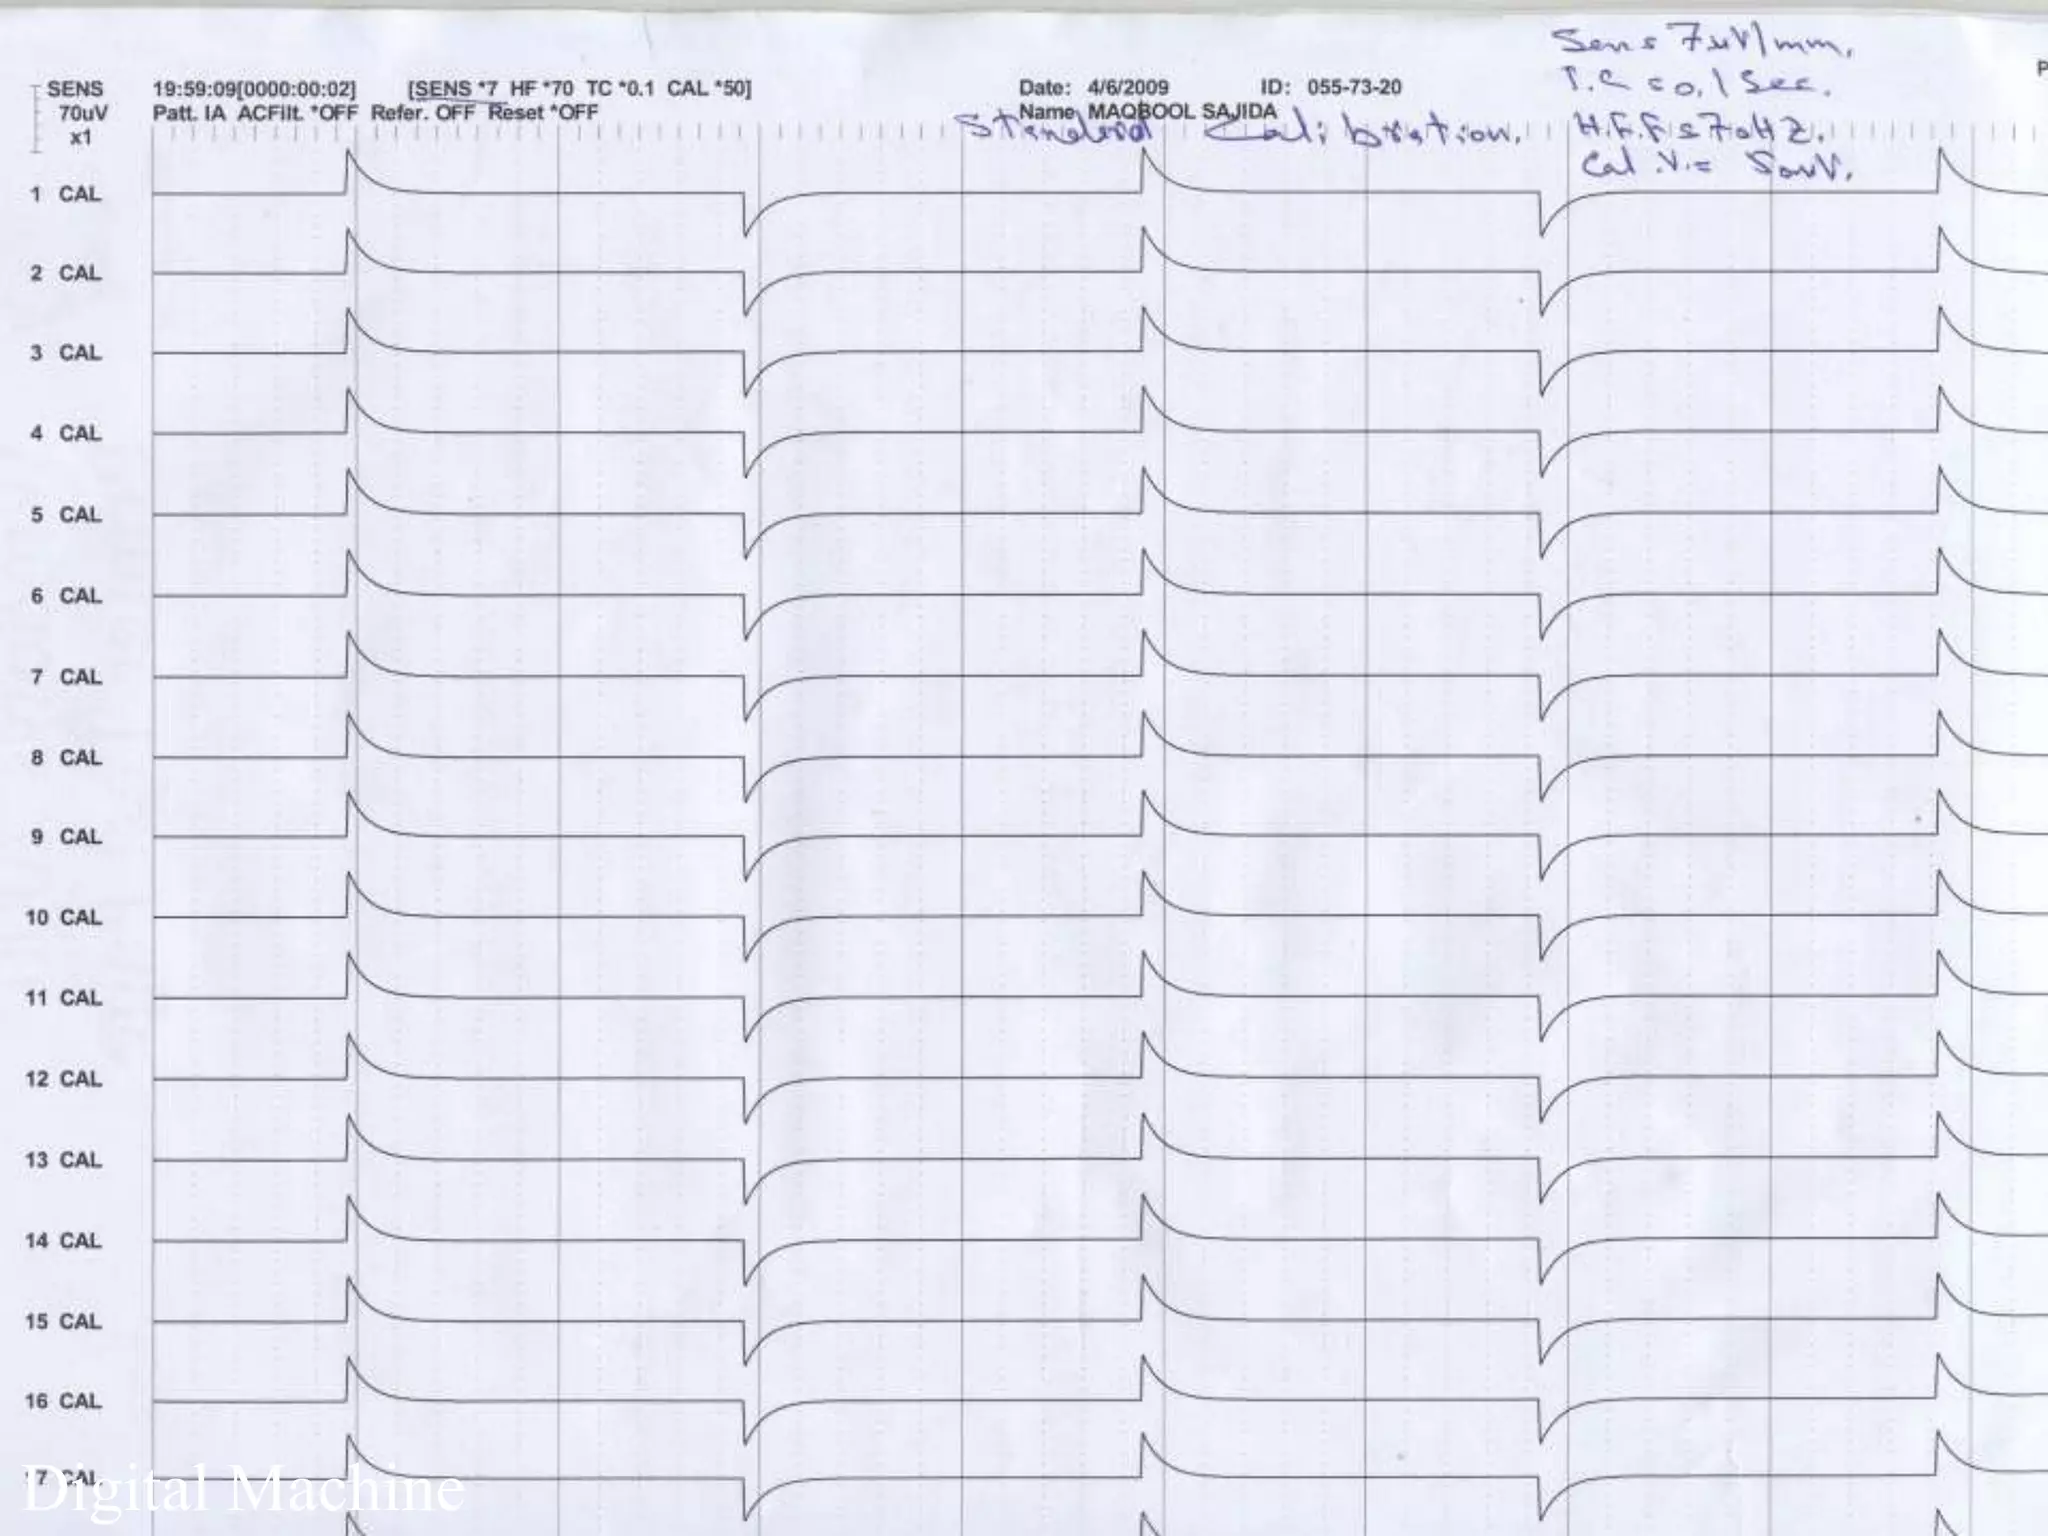 Sens = 7uV/mm.
SENS 19:59:09[0000:00:02] [SENS *7 HF *70 TC *0.1 CAL *50] Date: 4/6/2009 ID: 055-73-20 T.C = 0.1 Sec. P
70uV Patt. IA ACFilt. *OFF Refer. OFF Reset *OFF Name MAQBOOL SAJIDA
x1 Standard Calibration. H.F.F = 70HZ.
Cal.V. = 50uV.
1 CAL
2 CAL
3 CAL
4 CAL
5 CAL
6 CAL
7 CAL
8 CAL
9 CAL
10 CAL
11 CAL
12 CAL
13 CAL
14 CAL
15 CAL
16 CAL
17 CAL
Digital Machine